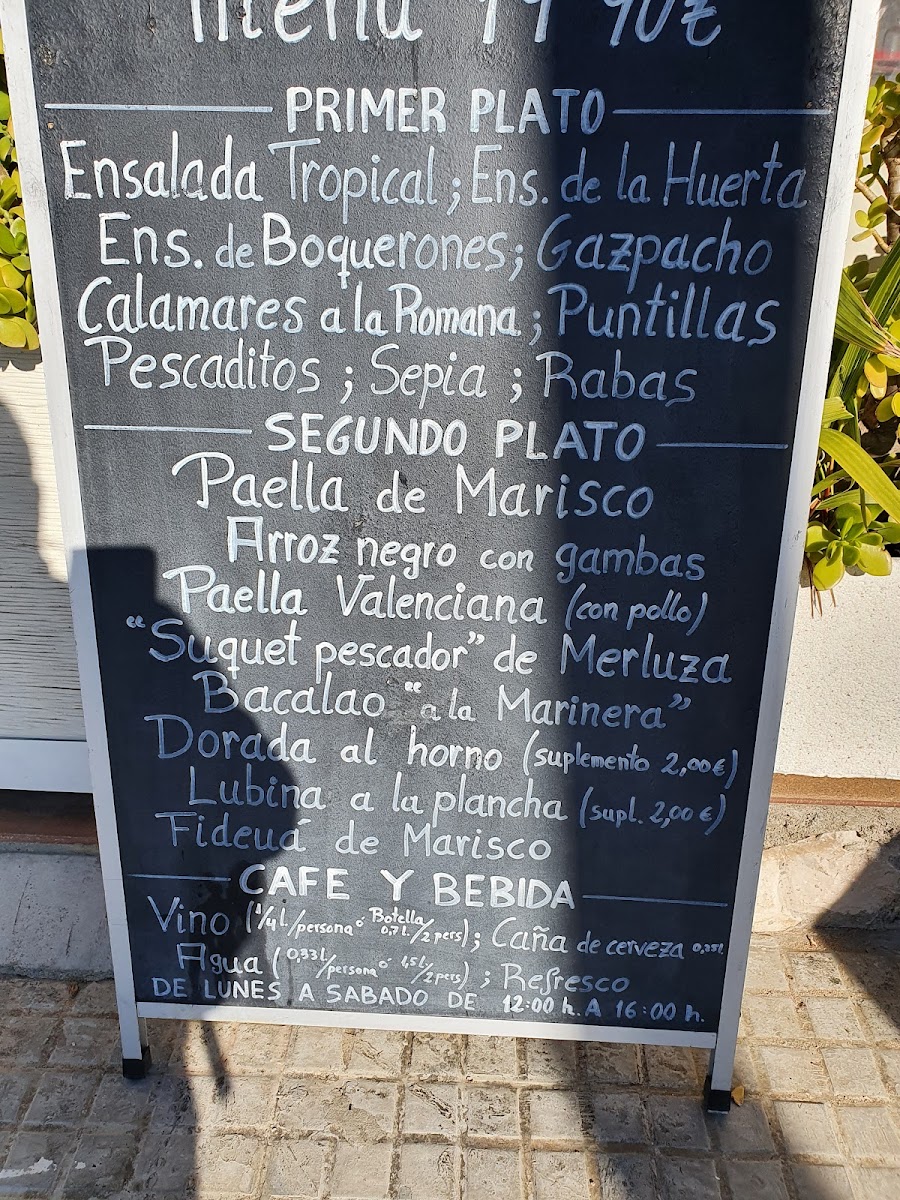 Menu 19'90€
PRIMER PLATO
Ensalada Tropical; Ens. de la Huerta
Ens. de Boquerones; Gazpacho
Calamares a la Romana; Puntillas
Pescaditos; Sepia; Rabas
SEGUNDO PLATO
Paella de Marisco
Arroz negro con gambas
Paella Valenciana (con pollo)
"Suquet pescador" de Merluza
Bacalao "a la Marinera"
Dorada al horno (suplemento 2,00€)
Lubina a la plancha (supl. 2,00€)
Fideuá de Marisco
CAFE Y BEBIDA
Vino (1/4 l/persona ó Botella 0,7 l./2 pers); Caña de cerveza 0,25 l
Agua (0,33 l/persona ó 1,5 L/2 pers); Refresco
DE LUNES A SABADO DE 12:00 h. A 16:00 h.